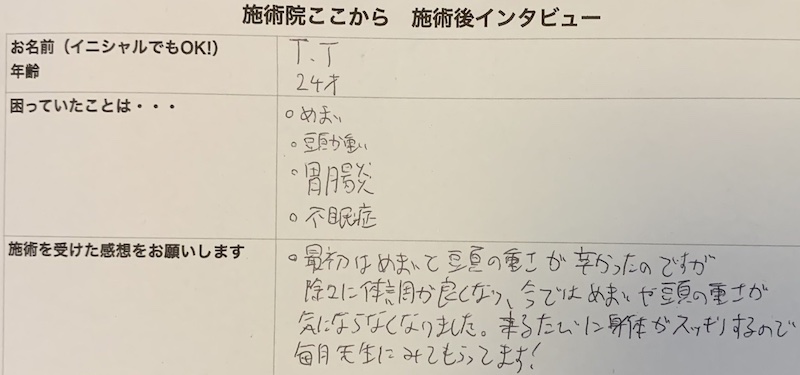 施術院ここから　施術後インタビュー
お名前（イニシャルでもOK!）
年齢
T.T
24才
困っていたことは・・・
○めまい
○頭が重い
○胃腸炎
○不眠症
施術を受けた感想をお願いします
○最初はめまいと頭の重さが辛かったのですが
除々に体調が良くなり、今ではめまいや頭の重さが
気にならなくなりました。来るたびに身体がスッキリするので
毎月先生にみてもらってます!